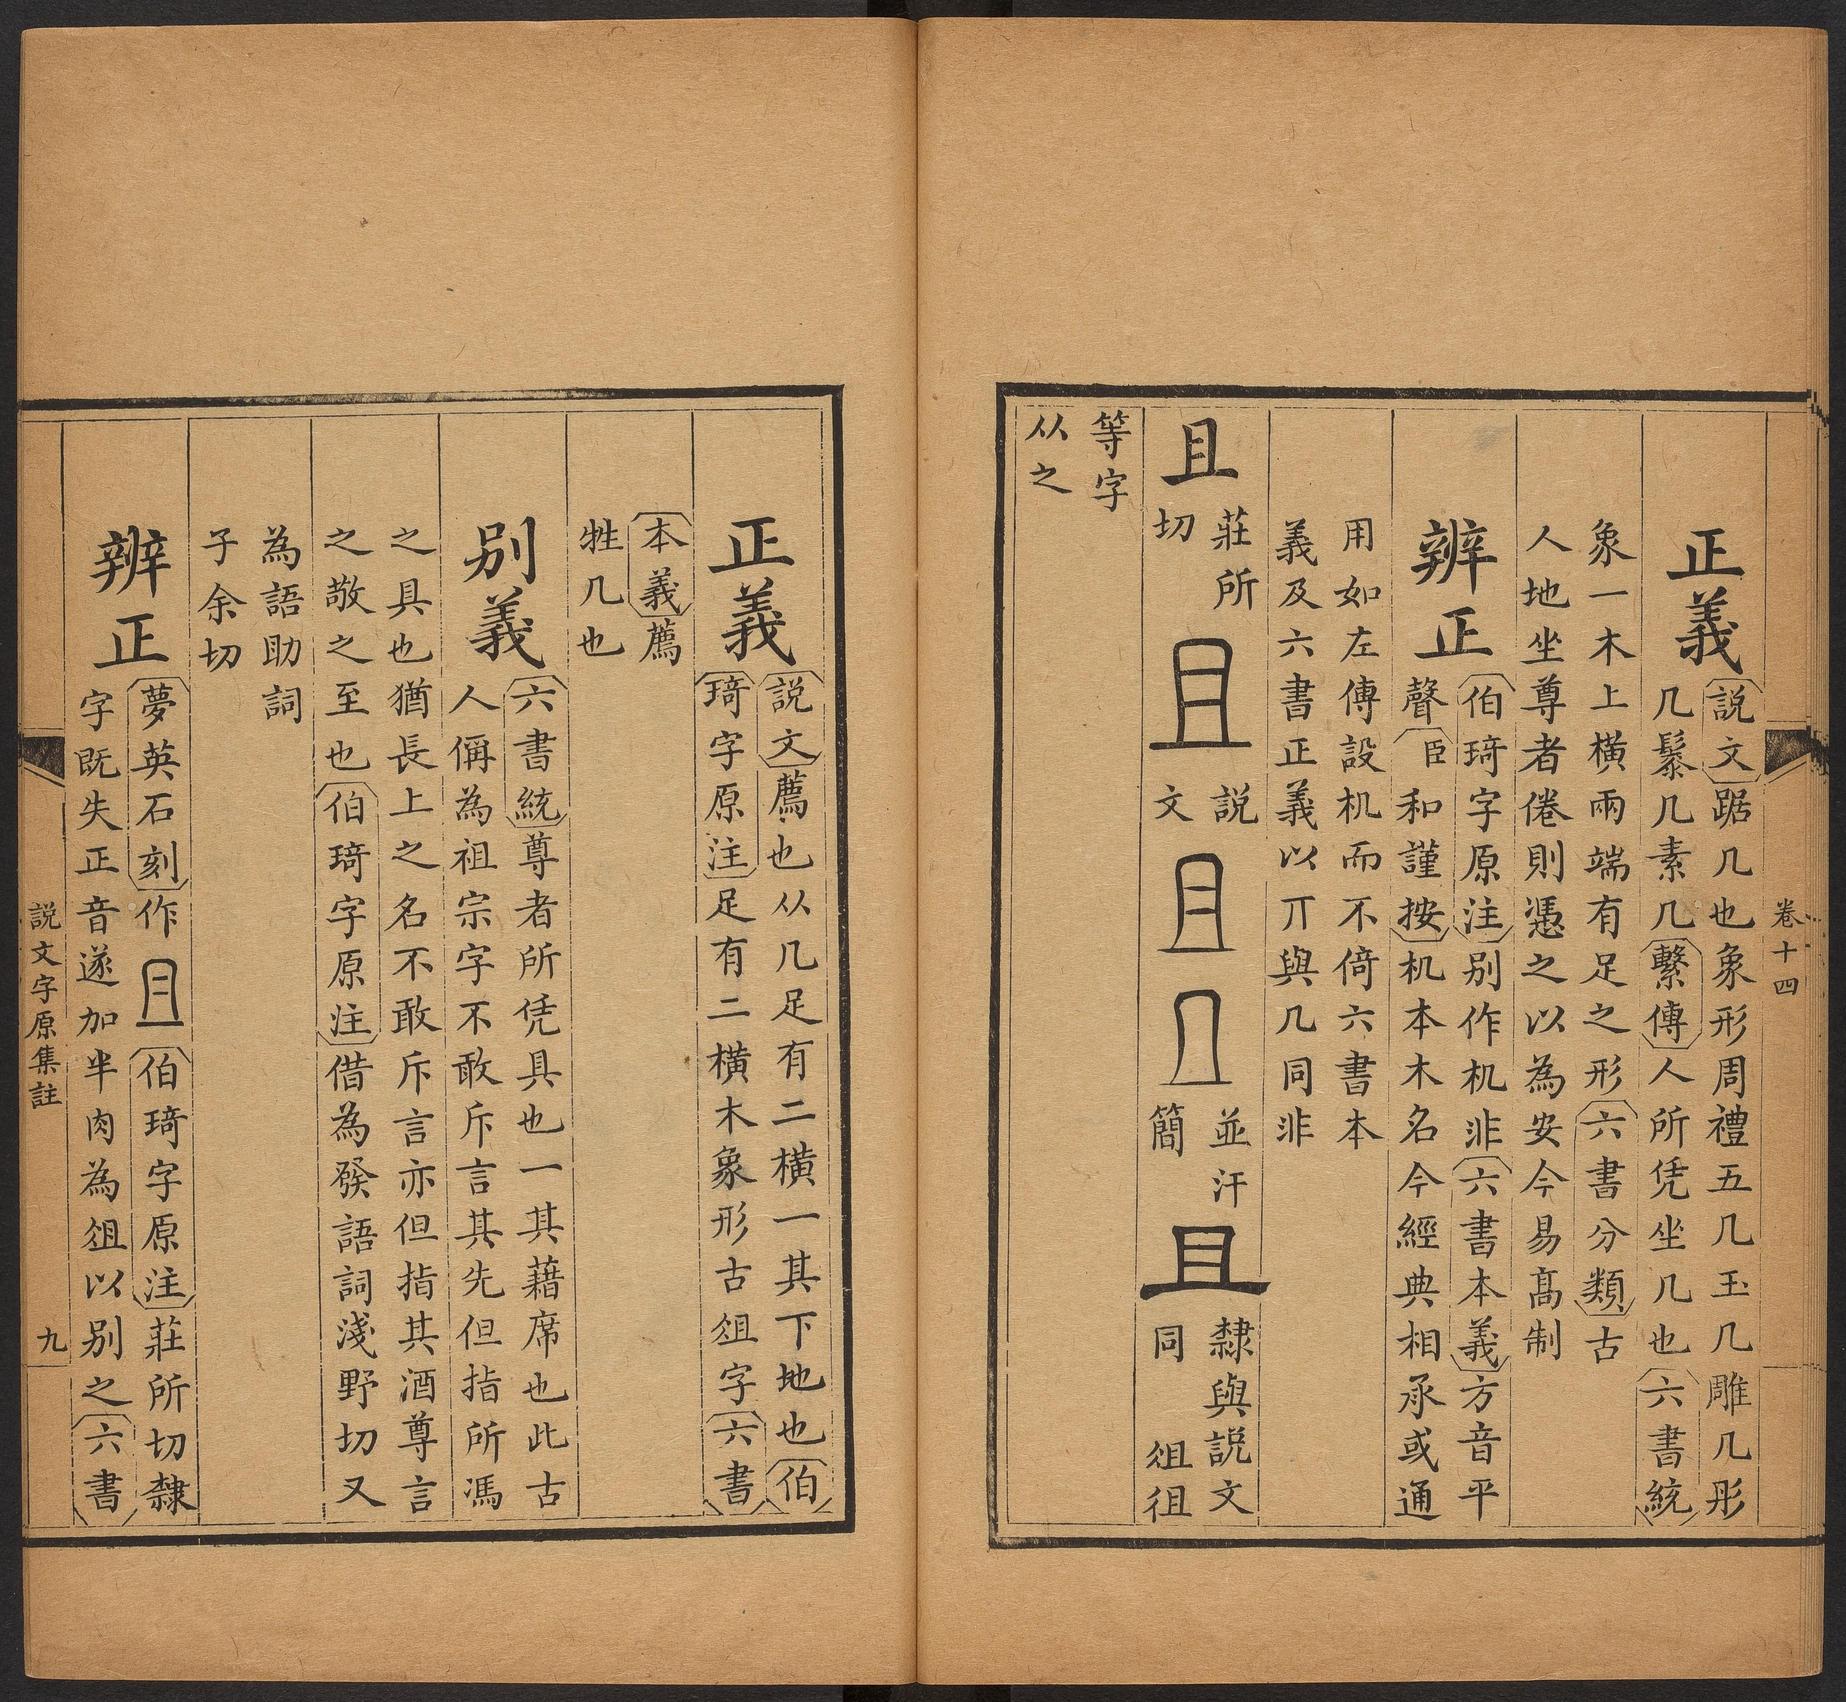 卷十四
正義
説文踞几也象形周禮五几玉几雕几彤
几鬃几素几繫傳人所凭坐几也六書統
象一木上橫兩端有足之形六書分類古
人地坐尊者倦則憑之以為安今易高制
辨正
伯琦字原注别作机非六書本義方音平
聲臣和謹按机本木名今經典相承或通
用如左傳設机而不倚六書本
義及六書正義以丌與几同非
且
莊所
切
且
説
文
且
並汗
簡
且
隸與説文
同俎徂
等字
从之
正義
説文薦也从几足有二橫一其下地也伯
琦字原注足有二橫木象形古俎字六書
本義薦
牲几也
别義
六書統尊者所凭具也一其藉席也此古
人偁為祖宗字不敢斥言其先但指所馮
之具也猶長上之名不敢斥言亦但指其酒尊言
之敬之至也伯琦字原注借為發語詞淺野切又
為語助詞
子余切
辨正
夢英石刻作且伯琦字原注莊所切隸
字既失正音遂加半肉為俎以别之六書
説文字原集註
九